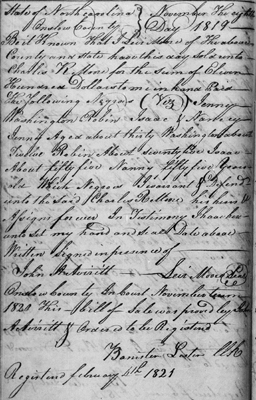 State of North carolina } November The eighth
Onslow County } Day 1819
Be it Known that I Levi More of the above
County and State have this day sold unto
Charles R. More for the Sum of Eleven
Hundred Dollars to me in hand Paid
The following Negroes (Viz) Jenney
Washington Robin Isaac & Nanney
Jenney Aged about thirty Washington about
Twelve Robin About seventy five Isaac
About fifty five Nanney fifty five Years
old Which Negroes I warant & Defend
unto the Said Charles R More his heirs &
Assigns for ever In Testimony I have here
unto set my hand and Seal Date above
Written Signed in presence of
John Averitt Levi More Seal
Onslow County In Court November term
1820 This bill of Sale was proved by
Averitt & Ordered to be Registered
Banister Lester Clk
Registered february 4th 1821